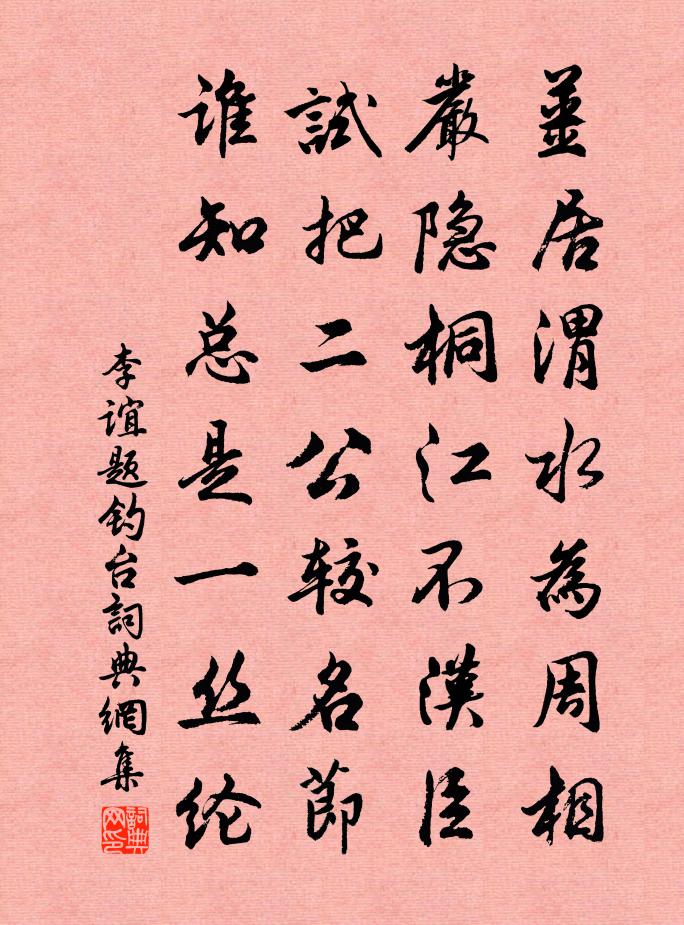 薑居渭水為周相
嚴隐桐江不漢臣
試把二公较名節
谁知总是一丝纶
李谊题钓台詞典網集
詞典网印